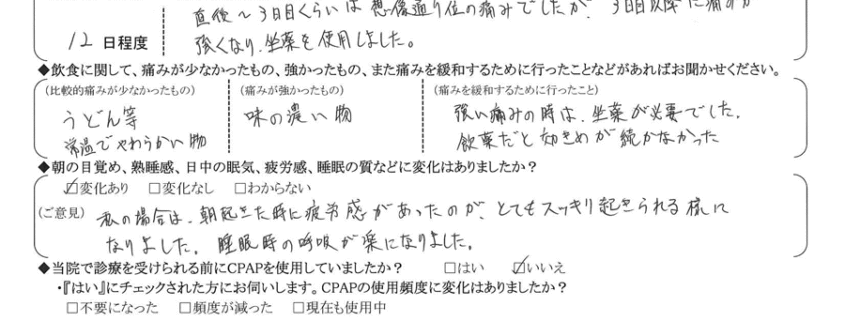 直後～3日目くらいは想像通り位の痛みでしたが、3日目以降に痛みが
12 日程度 強くなり、坐薬を使用しました。
◆飲食に関して、痛みが少なかったもの、強かったもの、また痛みを緩和するために行ったことなどがあればお聞かせください。
(比較的痛みが少なかったもの) (痛みが強かったもの) (痛みを緩和するために行ったこと)
うどん等 味の濃い物 強い痛みの時は、坐薬が必要でした。
常温でやわらかい物 飲薬だと効きめが続かなかった
◆朝の目覚め、熟睡感、日中の眠気、疲労感、睡眠の質などに変化はありましたか?
☑変化あり □変化なし □わからない
(ご意見) 私の場合は、朝起きた時に疲労感があったのが、とてもスッキリ起きられる様に
なりました。睡眠時の呼吸が楽になりました。
◆当院で診療を受けられる前にCPAPを使用していましたか? □はい ☑いいえ
・『はい』にチェックされた方にお伺いします。CPAPの使用頻度に変化はありましたか?
□不要になった □頻度が減った □現在も使用中